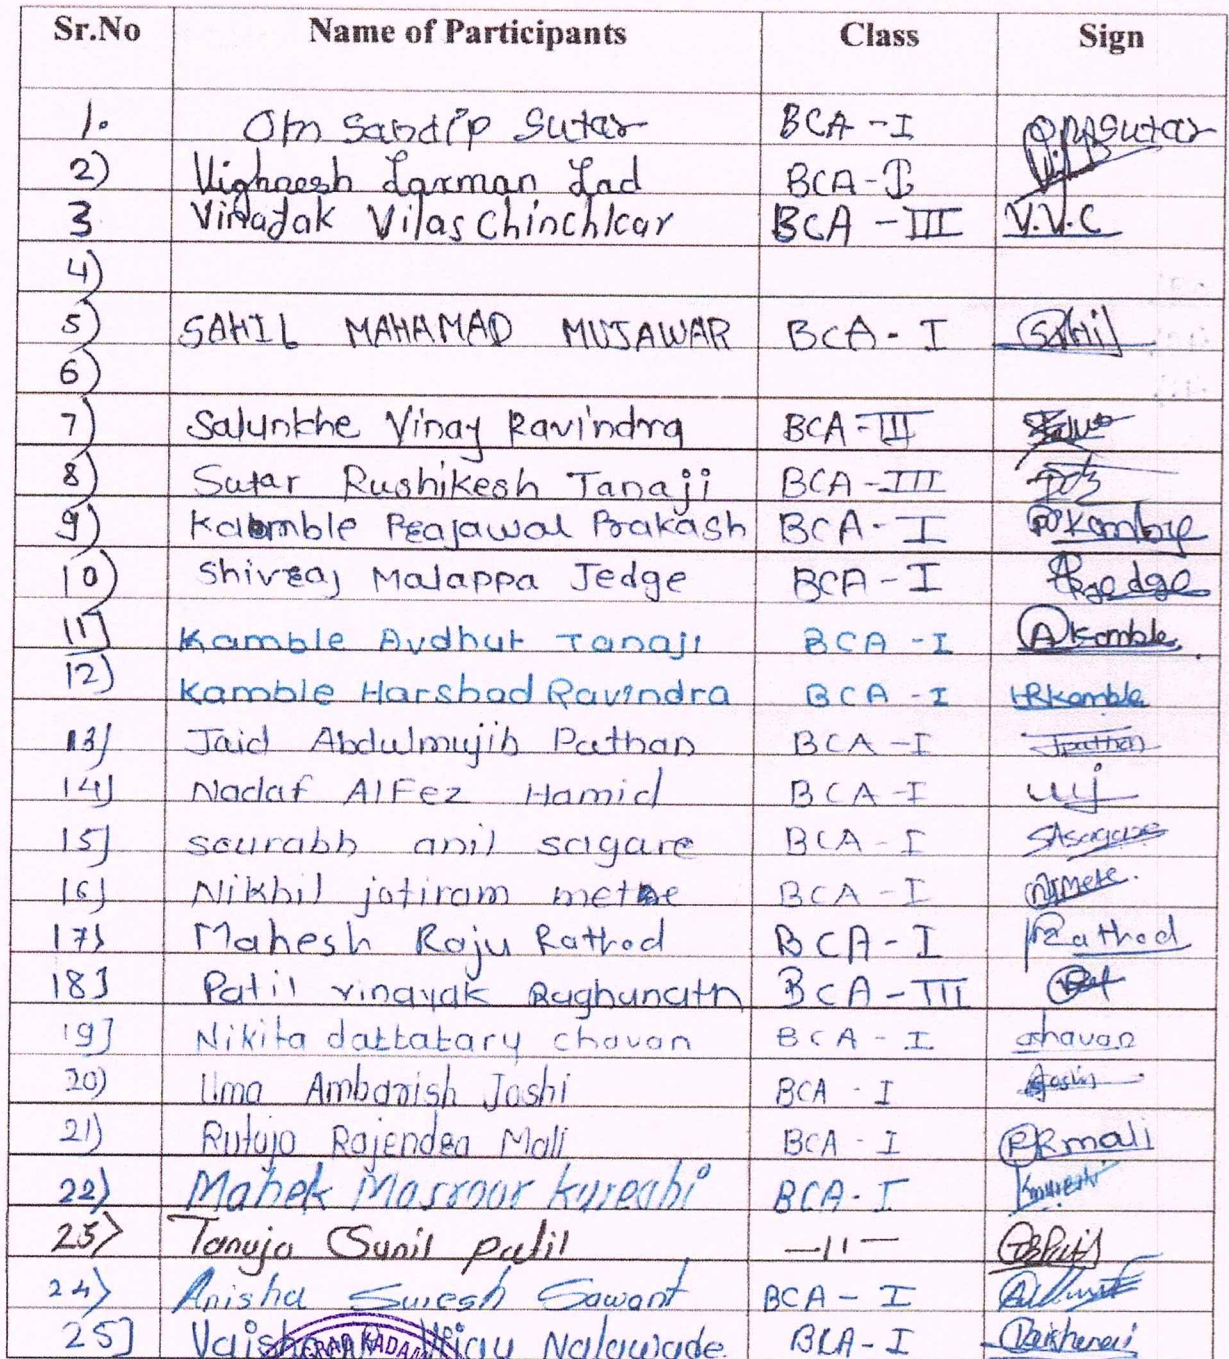 Sr.No Name of Participants Class Sign
1. Om Sandip Sutar BCA - I OM Sutar
2) Vighnesh Laxman Lad BCA - I
3 Vinayak Vilas Chinchkar BCA - III V.V.C
4)
5) SAHIL MAHAMAD MUJAWAR BCA - I Sahil
6)
7) Salunkhe Vinay Ravindra BCA - III
8) Sutar Rushikesh Tanaji BCA - III
9) Kamble Prajawal Prakash BCA - I Kamble
10) Shivraj Malappa Jedge BCA - I Jedge
11] Kamble Avdhut Tanaji BCA - I A Kamble
12) Kamble Harshad Ravindra BCA - I HRKamble
13) Jaid Abdulmujib Pathan BCA - I Jpathan
14] Nadaf AlFez Hamid BCA - I
15] saurabh anil sagare BCA - I SAsagare
16] Nikhil jotiram mete BCA - I NJMete.
17) Mahesh Raju Rathod BCA - I Rathod
18] Patil vinayak Raghunath BCA - III
19] Nikita dattatary chavan BCA - I chavan
20) Uma Ambarish Joshi BCA - I Joshi
21) Rutuja Rajendra Mali BCA - I RRmali
22) Mahek Masroor kureshi BCA - I
23) Tanuja Sunil patil —11—
24) Anisha Suresh Sawant BCA - I
25] Vijay Nalawade. BCA - I Vaishanavi
KADAM